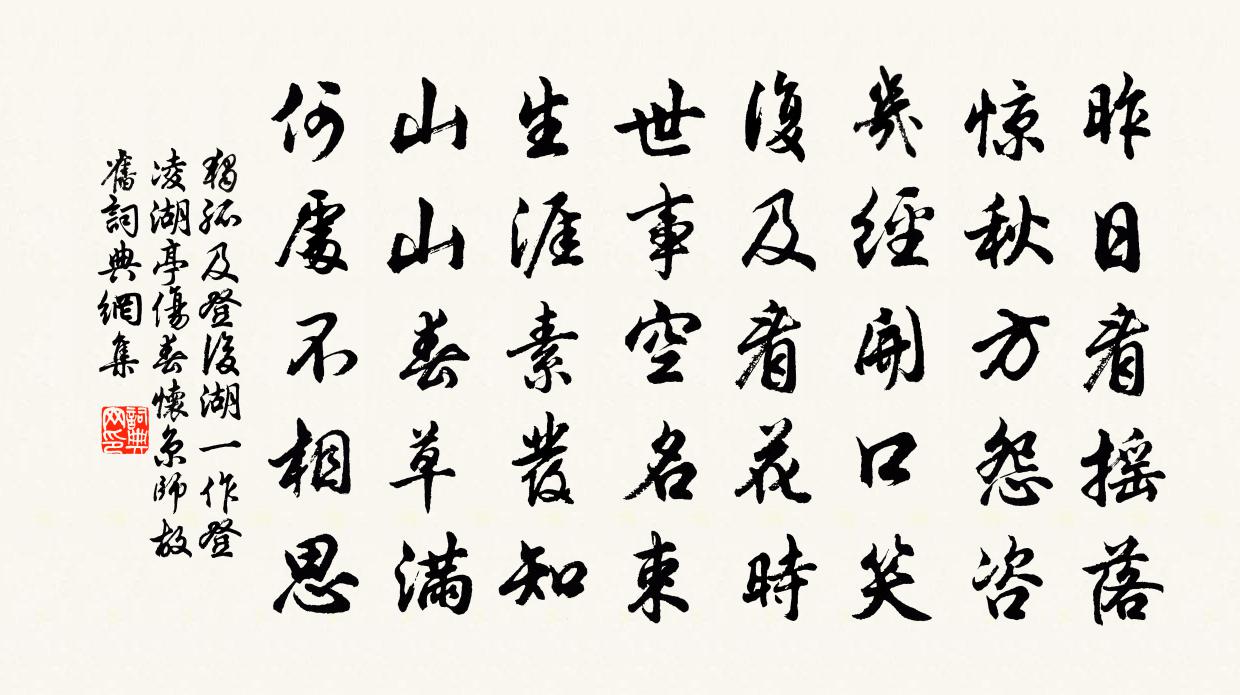 昨日看摇落
惊秋方怨咨
幾經開口笑
復及看花時
世事空名束
生涯素發知
山山春草滿
何處不相思
獨孤及登後湖一作登
凌湖亭傷春懷京師故
舊詞典網集
詞典
网印